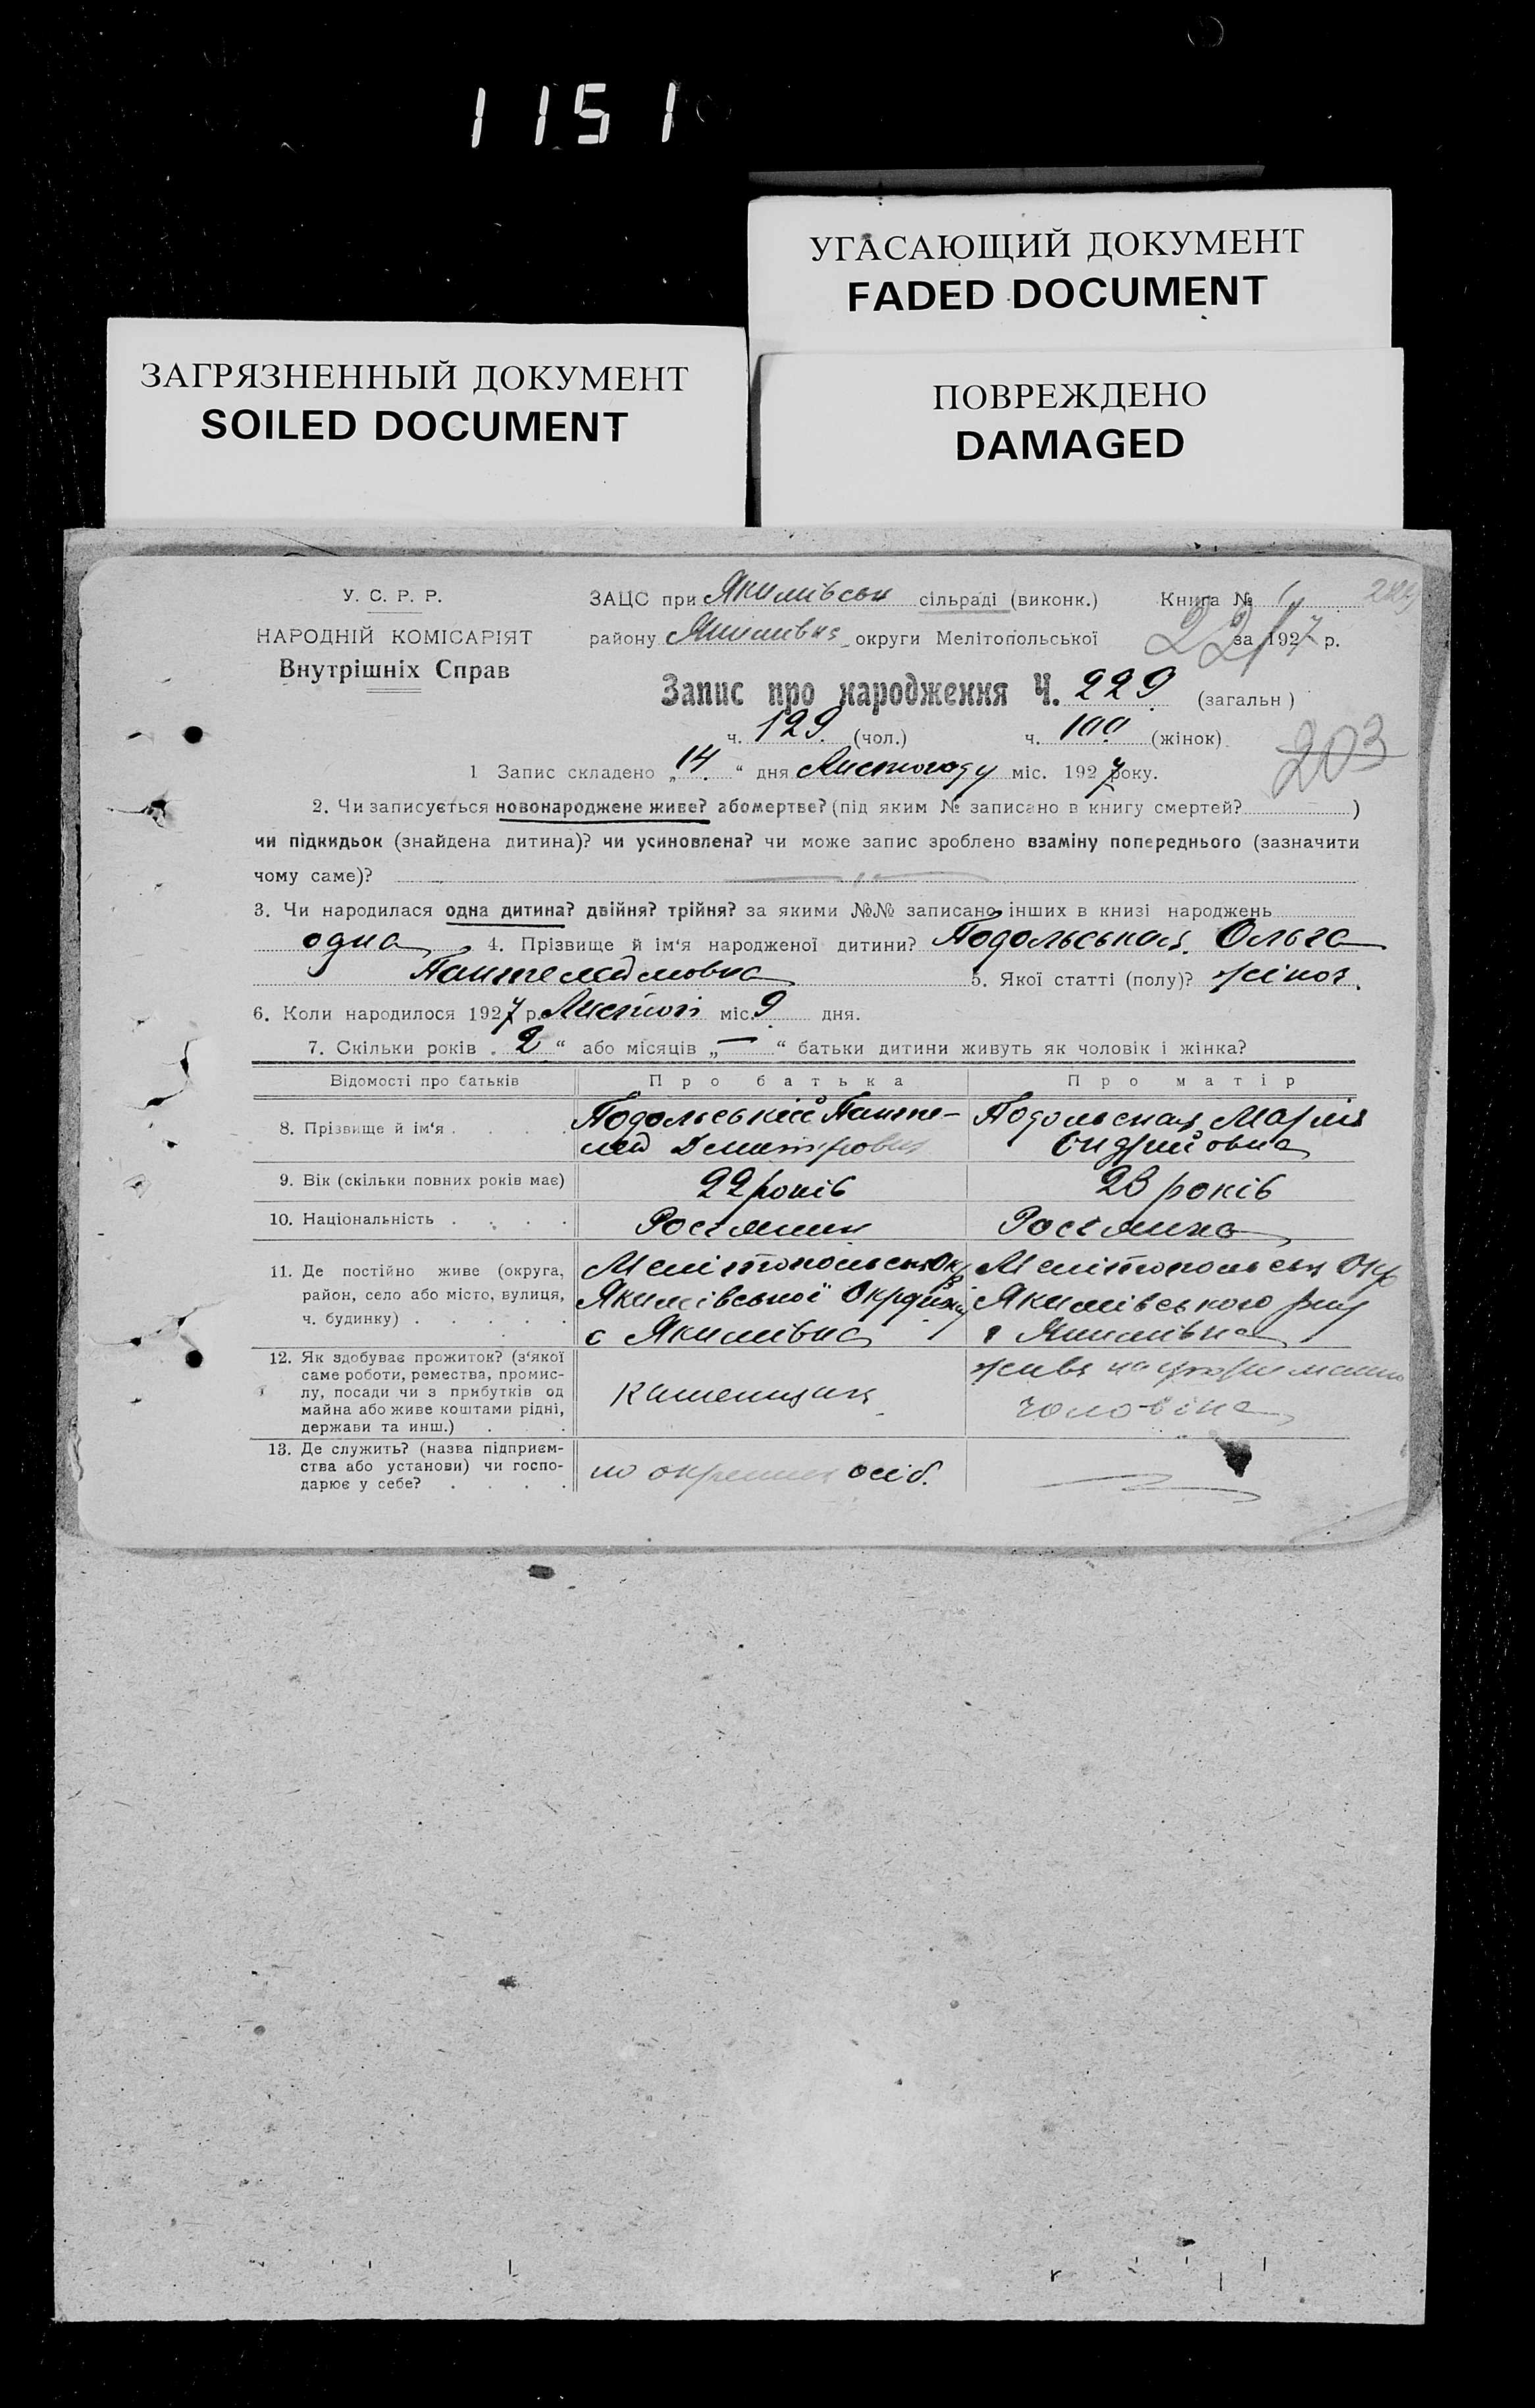 1151
УГАСАЮЩИЙ ДОКУМЕНТ
FADED DOCUMENT
ЗАГРЯЗНЕННЫЙ ДОКУМЕНТ
SOILED DOCUMENT
ПОВРЕЖДЕНО
DAMAGED
У. С. Р. Р.
НАРОДНІЙ КОМІСАРІЯТ
Внутрішніх Справ
ЗАЦС при Якимівськ сільраді (виконк.) Книга №
району Якимівка округи Мелітопольської за 1927 р.
221
Запис про народження Ч. 229 (загальн)
ч. 129 (чол.) ч. 100 (жінок)
203
1 Запис складено „14“ дня Листопаду міс. 1927 року.
2. Чи записується новонароджене живе? або мертве? (під яким № записано в книгу смертей? )
чи підкидьок (знайдена дитина)? чи усиновлена? чи може запис зроблено взаміну попереднього (зазначити
чому саме)?
3. Чи народилася одна дитина? двійня? трійня? за якими №№ записано інших в книзі народжень
одна 4. Прізвище й ім‘я народженої дитини? Подольськая Ольга
Пантелеймовна 5. Якої статті (полу)? жіноч.
6. Коли народилося 1927 р. Листоп міс. 9 дня.
7. Скільки років „2“ або місяців „—“ батьки дитини живуть як чоловік і жінка?
Відомості про батьків Про батька Про матір
8. Прізвище й ім‘я . . . . Подольський Панте- Подольская Марія
лей Дмитрович Андрийовна
9. Вік (скільки повних років має) 22 років 23 років
10. Національність . . . . Росіянин Росіянка
11. Де постійно живе (округа, район, село або місто, вулиця, ч. будинку) . . . . .
Мелітопольськ Окр Мелітопольськ Окр
Якимівської Якимівського рну
с Якимівка с Якимівка
12. Як здобуває прожиток? (з‘якої
саме роботи, ремества, промис-
лу, посади чи з прибутків од
майна або живе коштами рідні,
держави та инш.) . .
каменщик
живе на утриманні
чоловіка
13. Де служить? (назва підприєм-
ства або установи) чи госпо-
дарює у себе? . . . .
по окремих осіб.